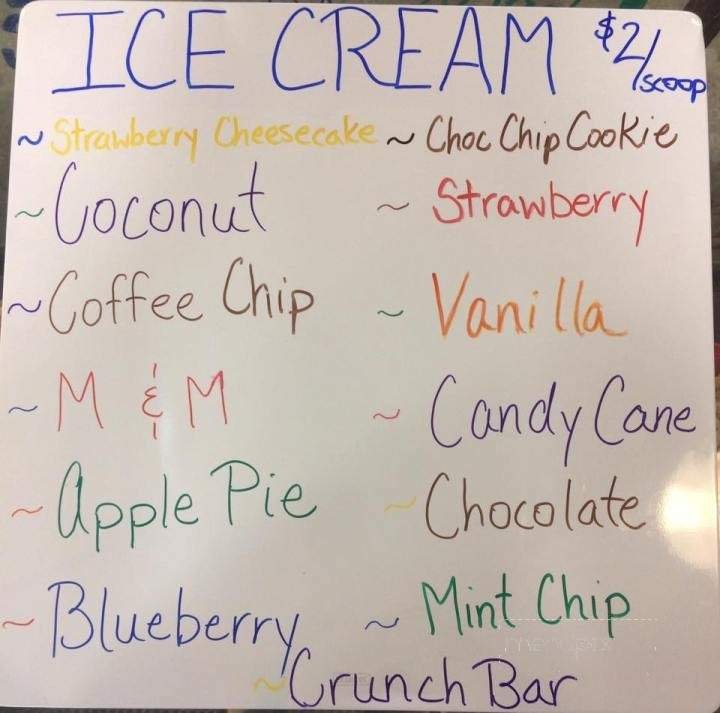 ICE CREAM $2/scoop
~ Strawberry Cheesecake ~ Choc Chip Cookie
~ Coconut ~ Strawberry
~ Coffee Chip ~ Vanilla
~ M & M ~ Candy Cane
~ Apple Pie ~ Chocolate
~ Blueberry ~ Mint Chip
~ Crunch Bar